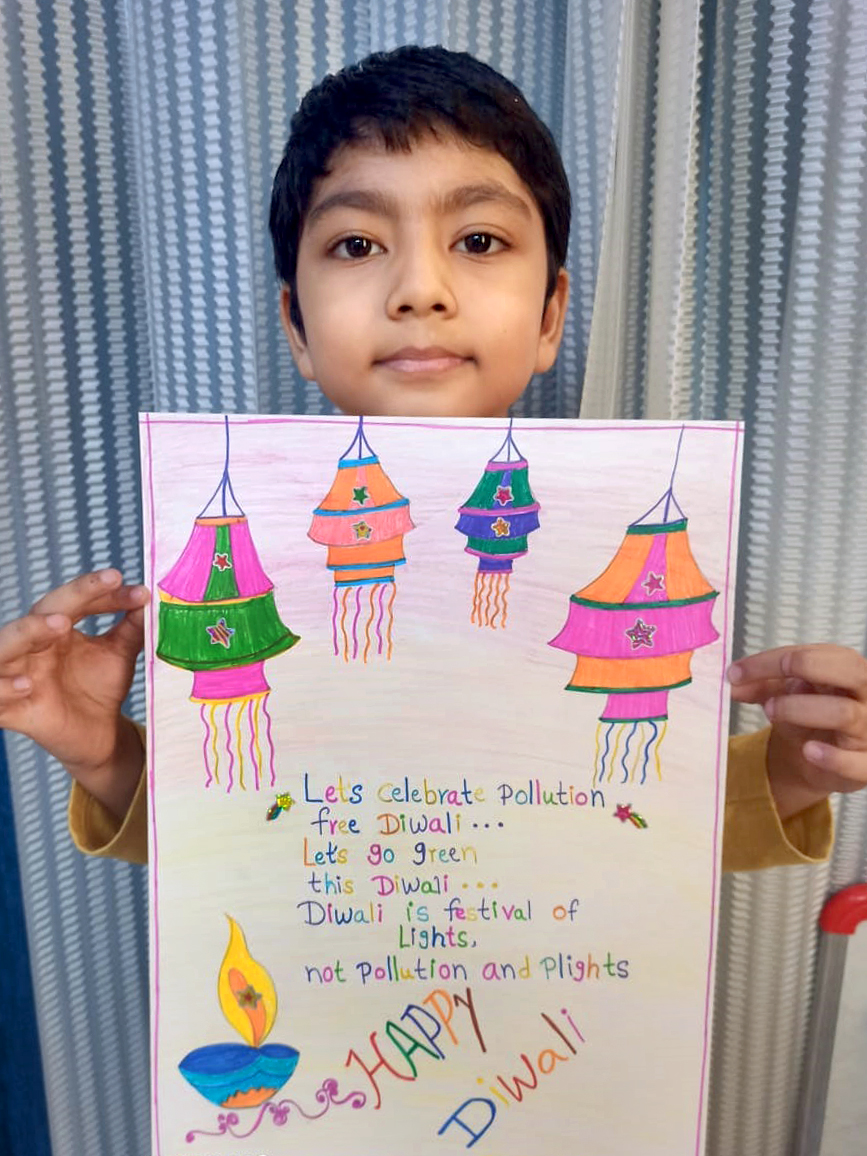 Let's celebrate pollution
free Diwali...
Let's go green
this Diwali...
Diwali is festival of
Lights,
not pollution and plights
HAPPY
Diwali